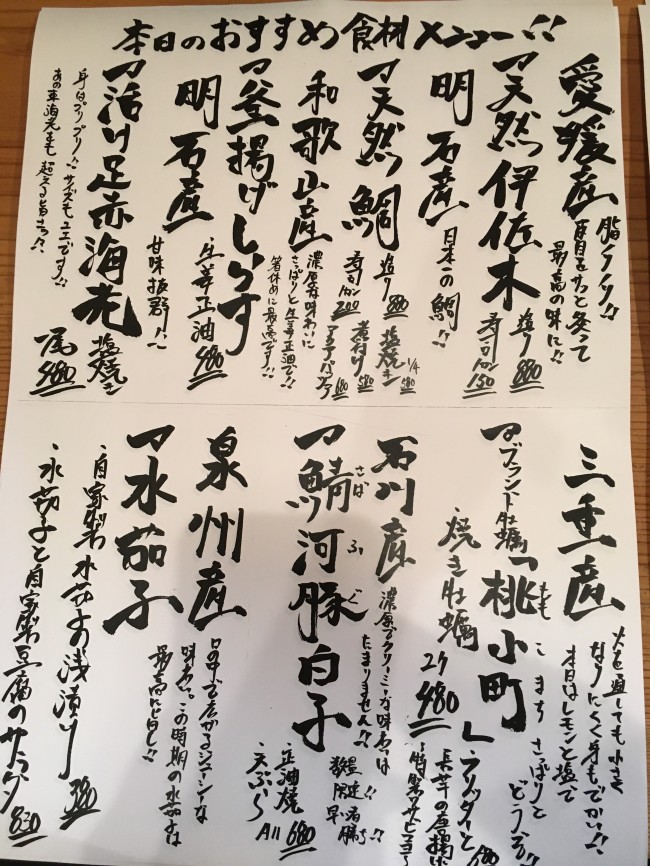 本日のおすすめ食材メニュー!!
愛媛産
脂ノリノリ!!
皮目をサッと炙って
最高の味に!!
天然伊佐木
造り 880
寿司1カン 150
明石産
日本一の鯛!!
天然鯛
造り 880
塩焼き 1/4 580
寿司1カン 200
煮付け 580
アクアパッツァ 680
和歌山産
濃厚な味わいに
さっぱりと生姜正油で!!
箸休めに最高です!!
釜揚げしらす
生姜正油 480
明石産
甘味抜群!!
活〆足赤海老
塩焼き
一尾 480
身はプリプリ!! サイズも
あの車海老をも超える旨さ!!
三重産
火を通しても小さく
なりにくく身もでかい!!
本日はレモンと塩で
さっぱりと
どうぞ!!
ブランド牡蠣「桃小町」
もも こまち
焼き牡蠣
2ケ 480
石川産
濃厚でクリーミーな味わいは
たまりません!!
鯖河豚白子
さば ふぐ
数量限定!!
早い者勝ち!!
正油焼
天ぷら
All 680
泉州産
味わい。この時期の水茄は
最高に旨し!!
水茄子
・自家製水茄子の浅漬け 380
・水茄子と自家製豆腐のサラダ 830